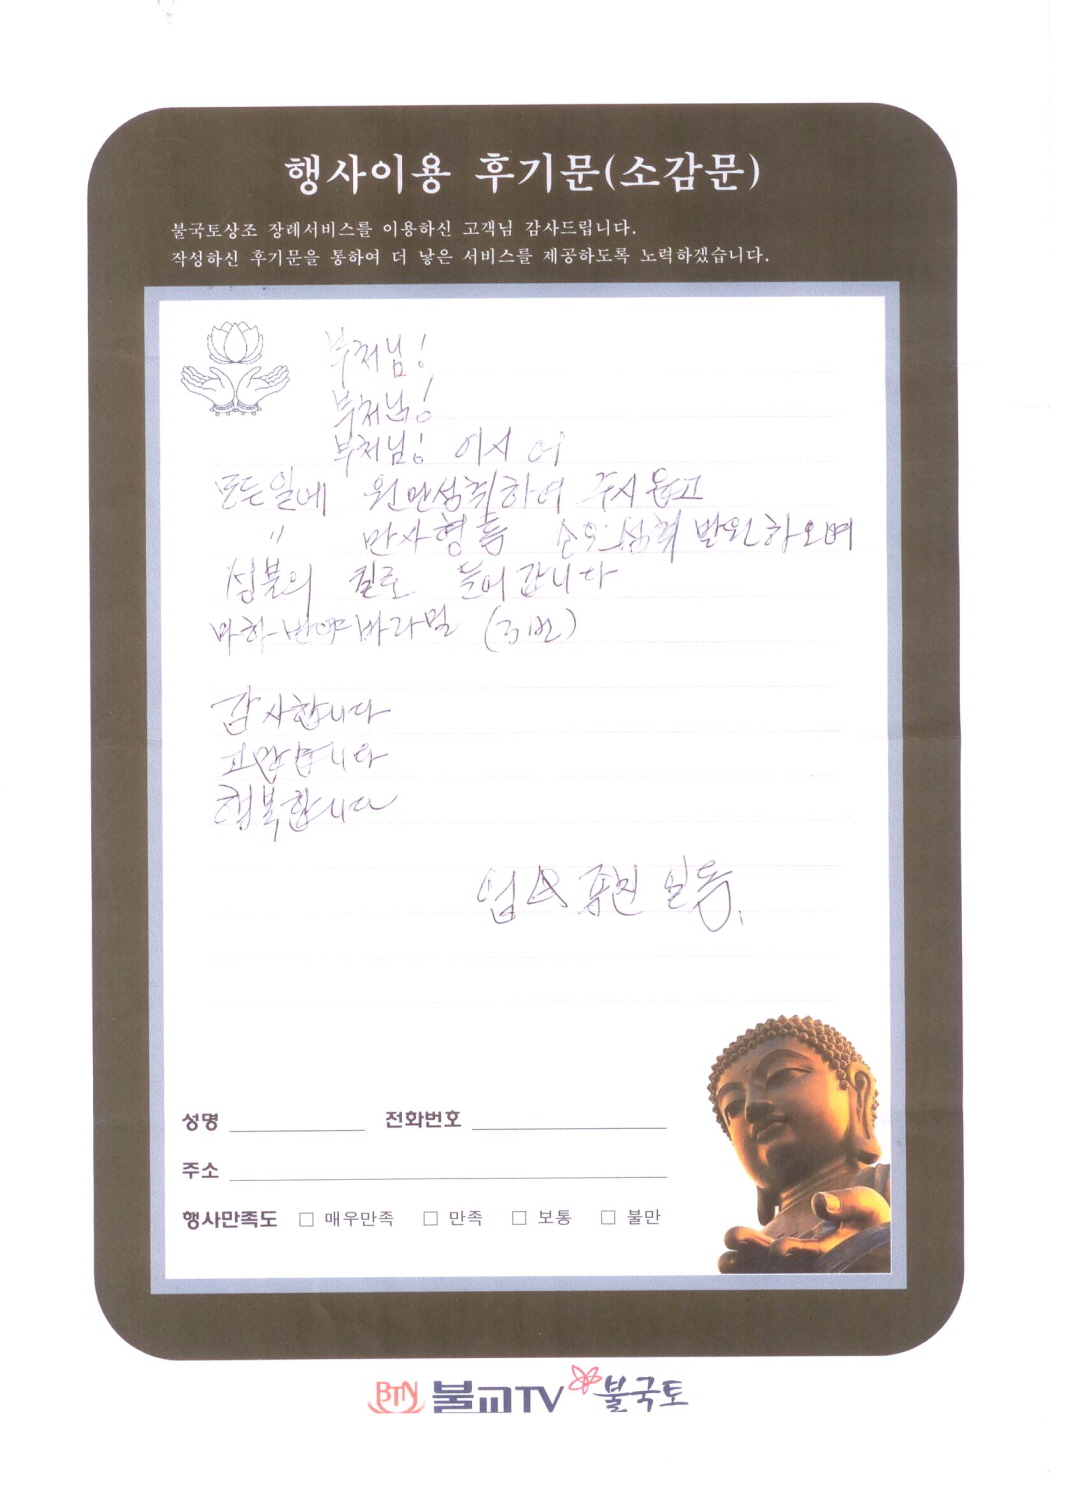 행사이용 후기문(소감문)
불국토상조 장례서비스를 이용하신 고객님 감사드립니다.
작성하신 후기문을 통하여 더 낳은 서비스를 제공하도록 노력하겠습니다.
부처님!
부처님!
부처님! 이시여
모든일에 원만성취하여 주시옵고
〃 만사형통 소원성취 발원하오며
성불의 길로 들어갑니다
마하반야바라밀 (3번)
감사합니다
고맙습니다
행복합니다
일동.
성명 전화번호
주소
행사만족도 □ 매우만족 □ 만족 □ 보통 □ 불만
BTN 불교TV 불국토